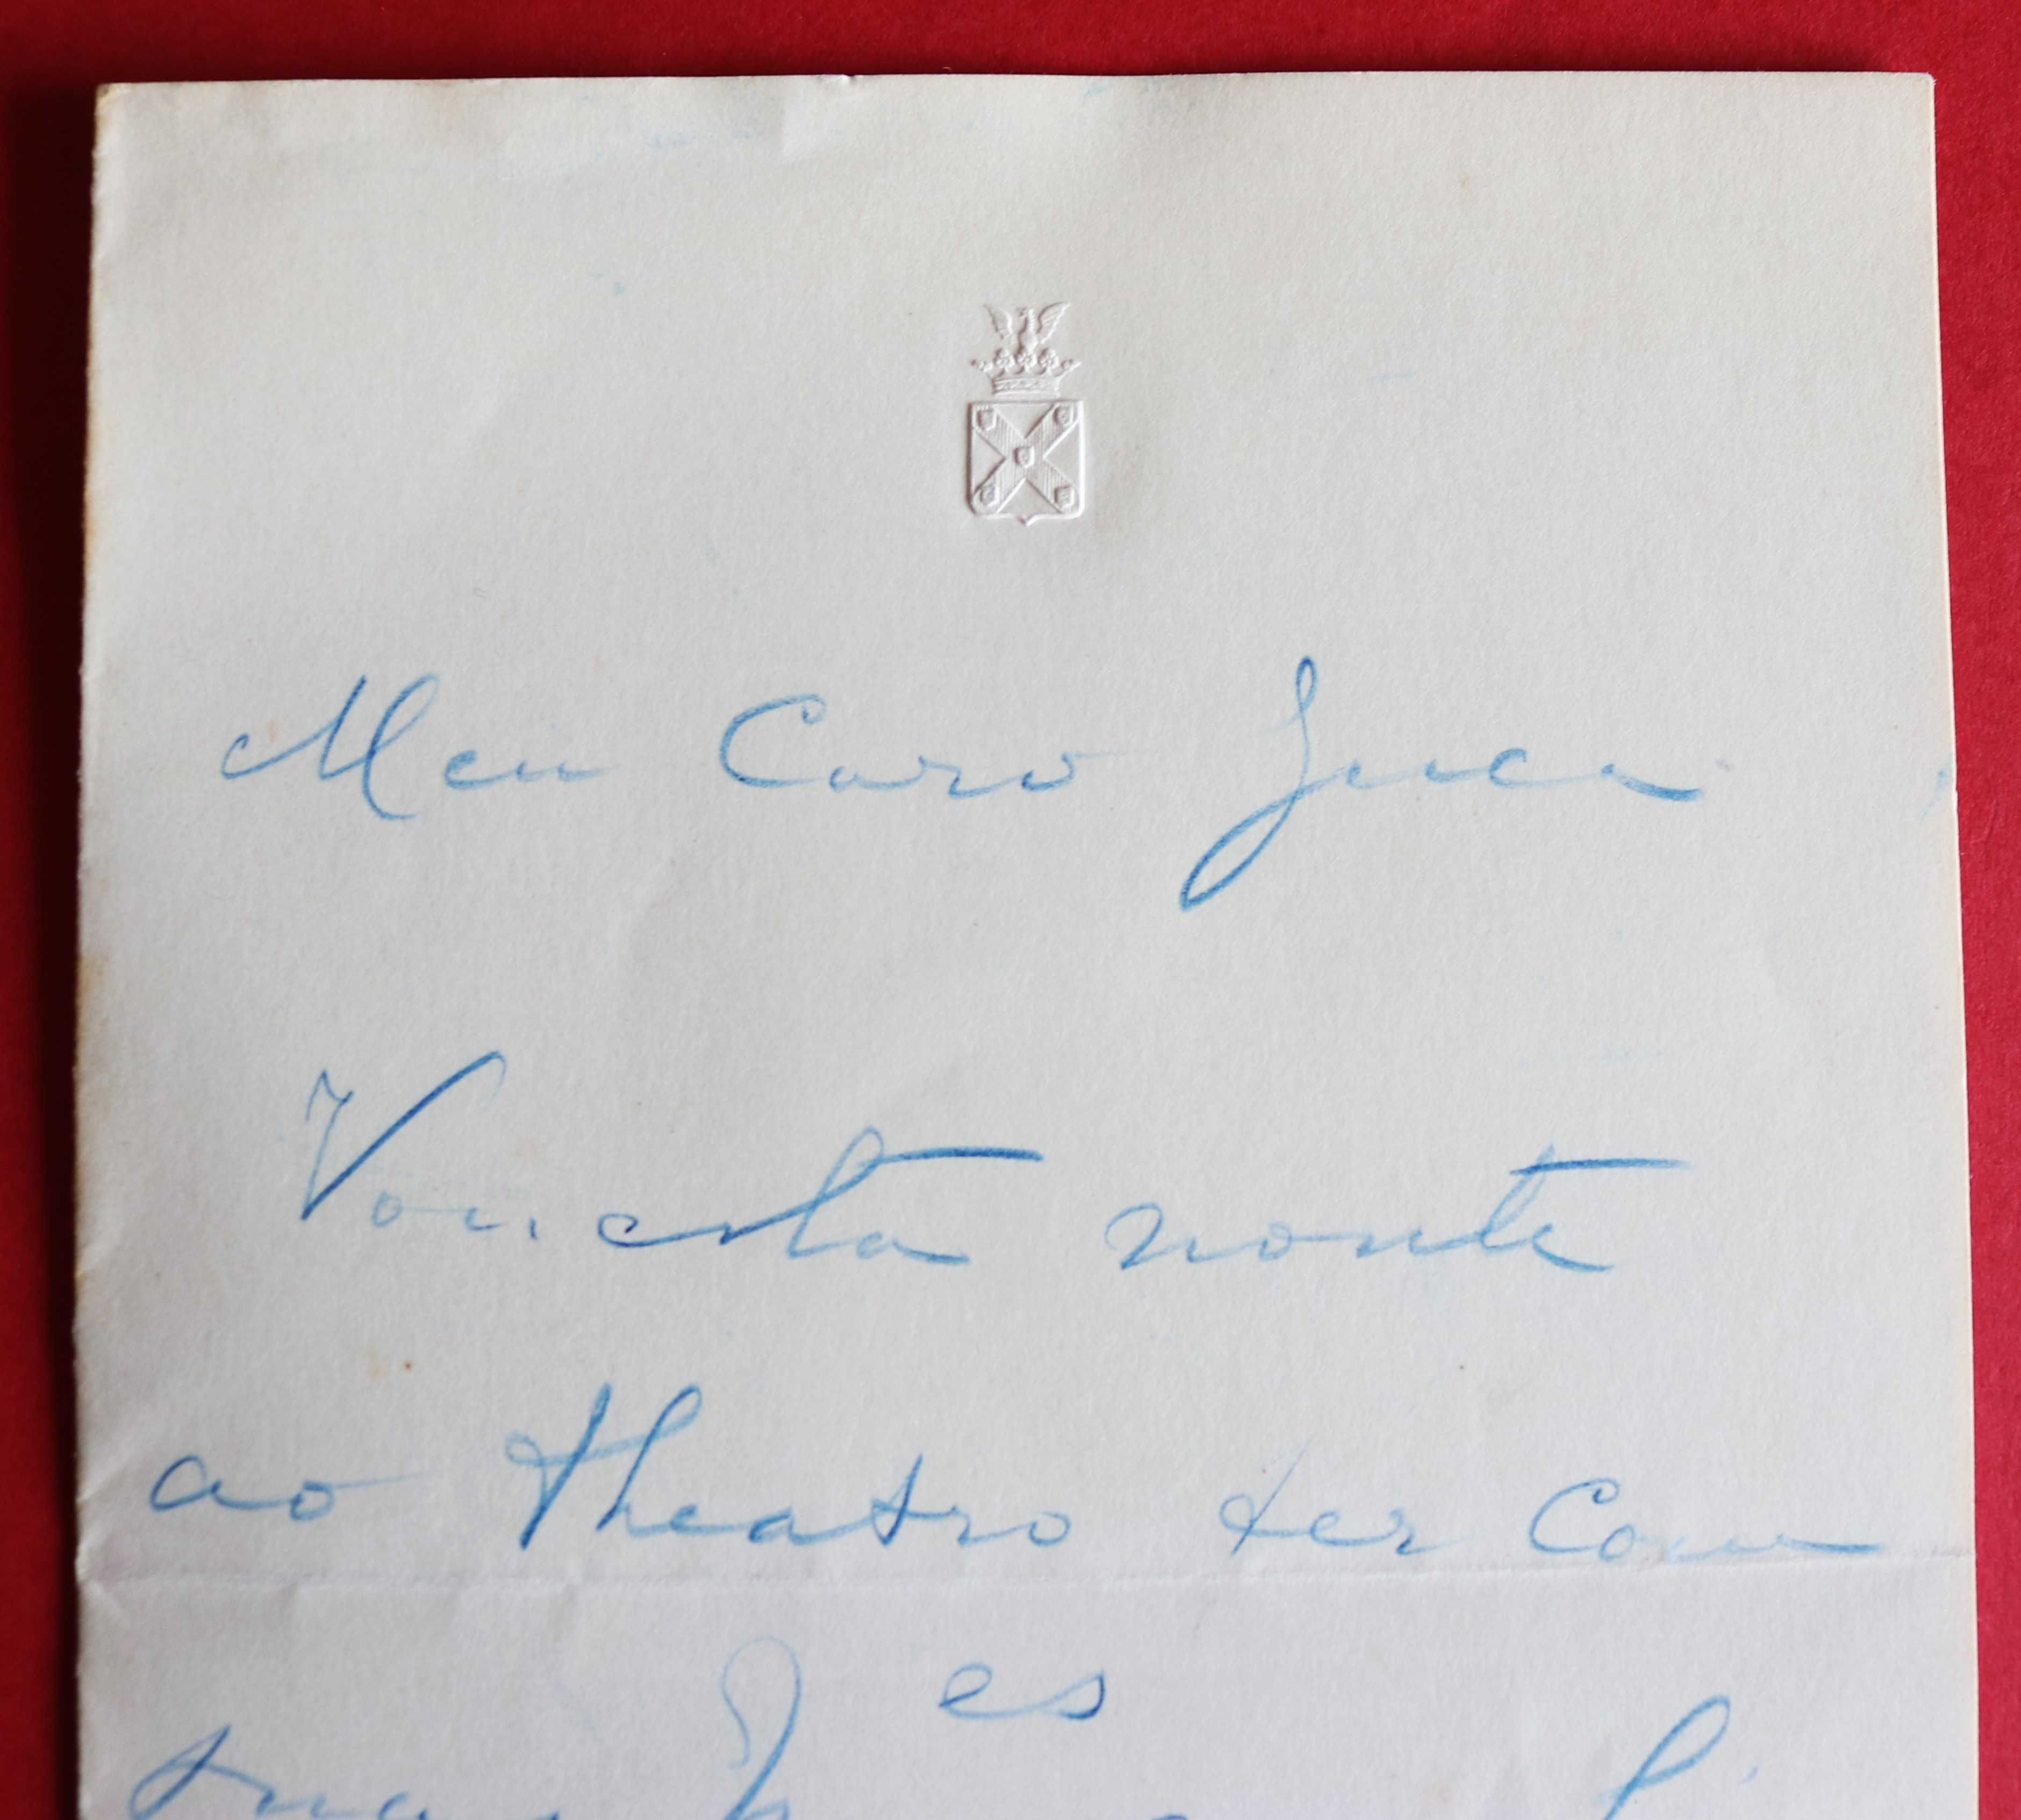 Meu Caro Juca
Vou esta noute
ao theatro ter com
es